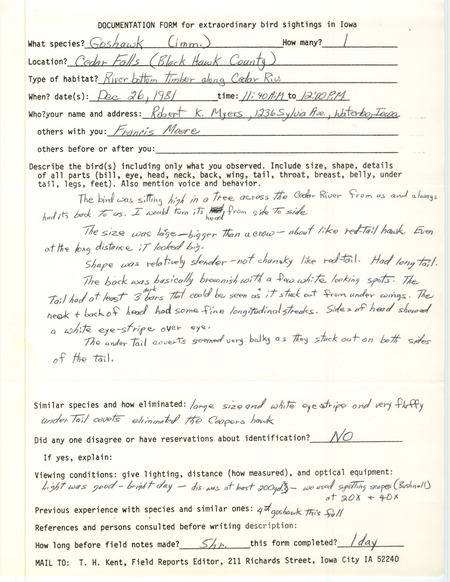 DOCUMENTATION FORM for extraordinary bird sightings in Iowa
What species? Goshawk (imm.) How many? 1
Location? Cedar Falls (Black Hawk County)
Type of habitat? River bottom timber along Cedar Riv.
When? date(s): Dec 26, 1981 time: 11:40 AM to 12:10 PM
Who? your name and address: Robert K. Myers, 1236 Sylvia Ave, Waterloo, Iowa
others with you: Francis Moore
others before or after you:
Describe the bird(s) including only what you observed. Include size, shape, details
of all parts (bill, eye, head, neck, back, wing, tail, throat, breast, belly, under
tail, legs, feet). Also mention voice and behavior.
The bird was sitting high in a tree across the Cedar River from us and always
had its back to us. I would turn its head from side to side.
The size was large - bigger than a crow - about like redtail hawk Even
at the long distance it looked big.
Shape was relatively slender - not chunky like redtail. Had long tail.
The back was basically brownish with a few white looking spots. The
Tail had at least 3 dark bars that could be seen as it stuck out from under wings. The
neck + back of head had some fine longitudinal streaks. Sides of head showed
a white eye-stripe over eye.
The under tail coverts seemed very bulky as they stuck out on both sides
of the tail.
Similar species and how eliminated: large size and white eyestripe and very fluffy
under tail coverts eliminated the Coopers hawk
Did any one disagree or have reservations about identification? NO
If yes, explain:
Viewing conditions: give lighting, distance (how measured), and optical equipment:
Light was good - bright day - dis. was at least 200 yds - we used spotting scopes (Bushnell)
at 20X + 40X
Previous experience with species and similar ones: 4th goshawk this fall
References and persons consulted before writing description:
How long before field notes made? 5hr. this form completed? 1 day
MAIL TO: T. H. Kent, Field Reports Editor, 211 Richards Street, Iowa City IA 52240